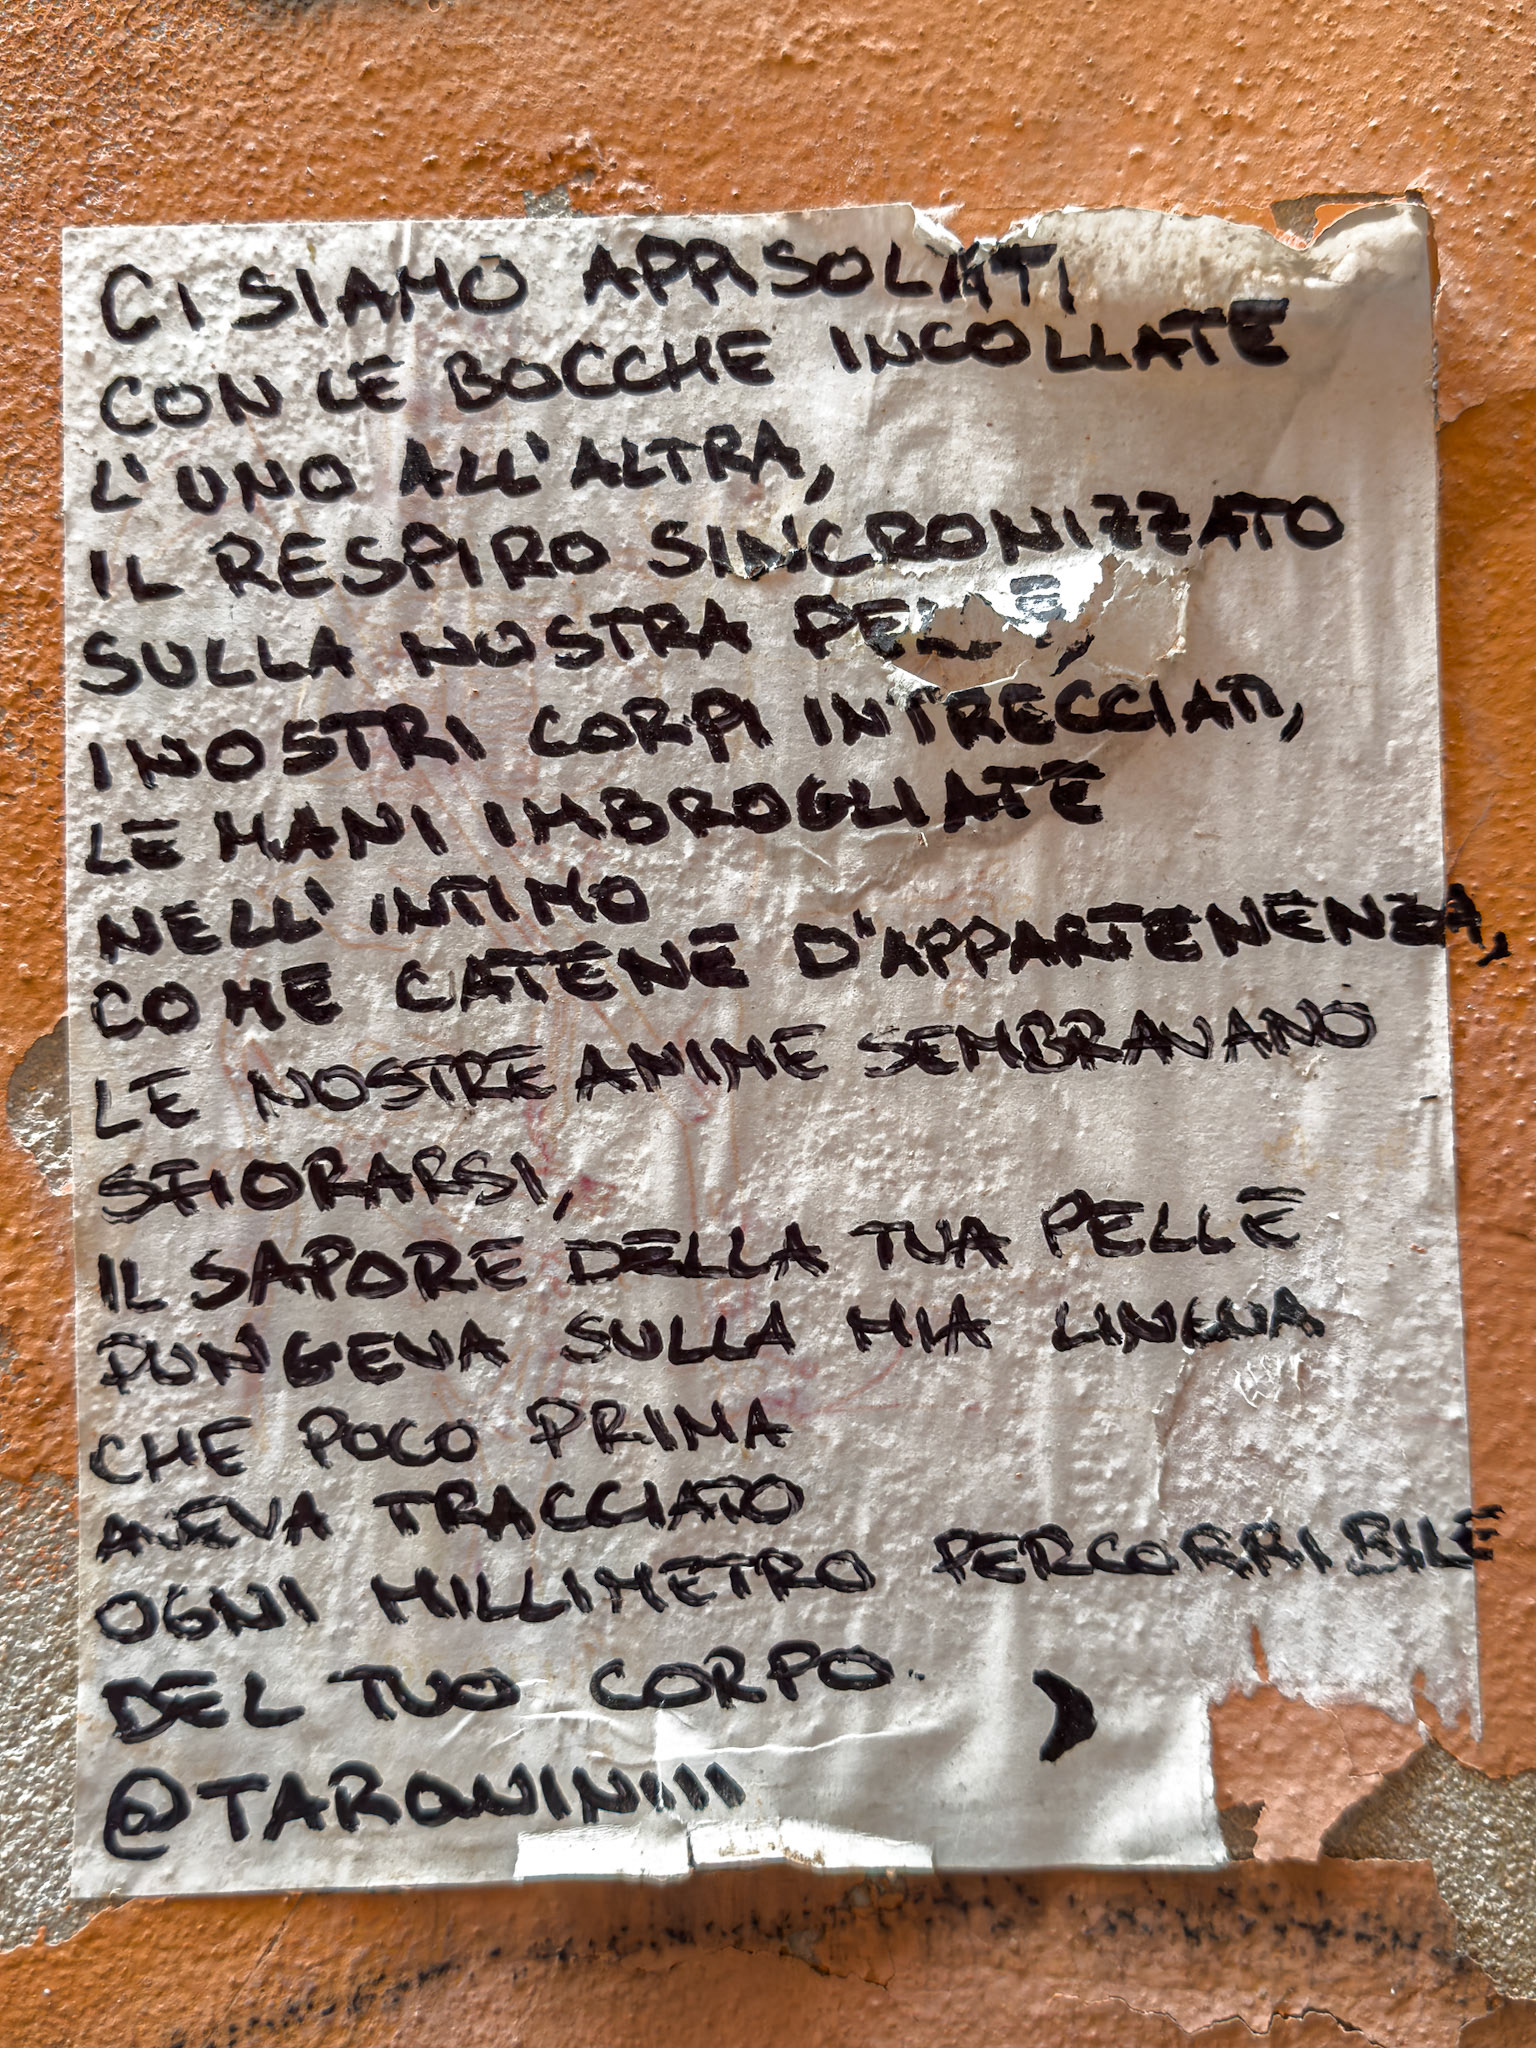 CI SIAMO APPISOLATI
CON LE BOCCHE INCOLLATE
L'UNO ALL'ALTRA,
IL RESPIRO SINCRONIZZATO
SULLA NOSTRA PELLE,
I NOSTRI CORPI INTRECCIATI,
LE MANI IMBROGLIATE
NELL'INTIMO
COME CATENE D'APPARTENENZA,
LE NOSTRE ANIME SEMBRAVANO
SFIORARSI,
IL SAPORE DELLA TUA PELLE
PUNGEVA SULLA MIA LINGUA
CHE POCO PRIMA
AVEVA TRACCIATO
OGNI MILLIMETRO PERCORRIBILE
DEL TUO CORPO.